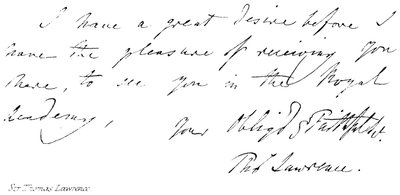 I have a great desire before I
have the pleasure of receiving you
there, to see you in the Royal
Academy,
your Oblig'd & Faithful
Tho Lawrence.
Sir Thomas Lawrence